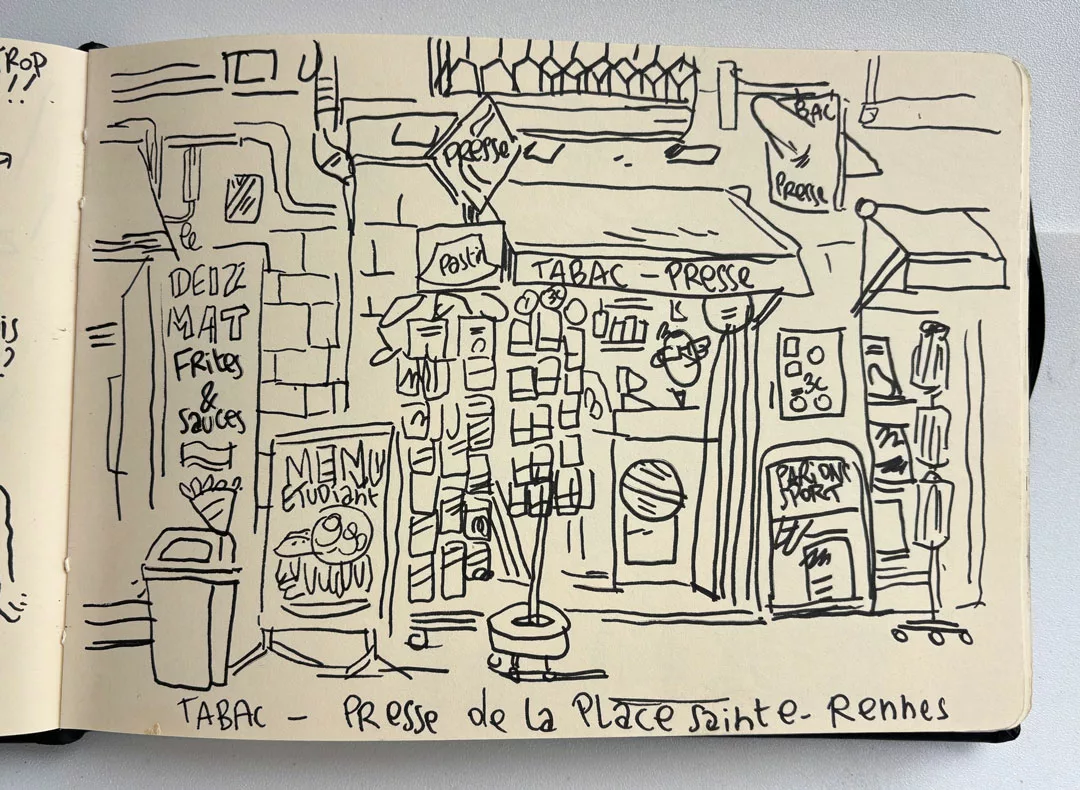 TROP
!!
is
?
PRESSE
BAC
PRESSE
le
DEIZ
MAT
FRites
&
SAUCES
Pastis
TABAC - PRESSE
3€
3€
MENU
ETUDIANT
PARIONS
SPORT
TABAC - PRESSE de LA PLACE SAINTE - RENNES